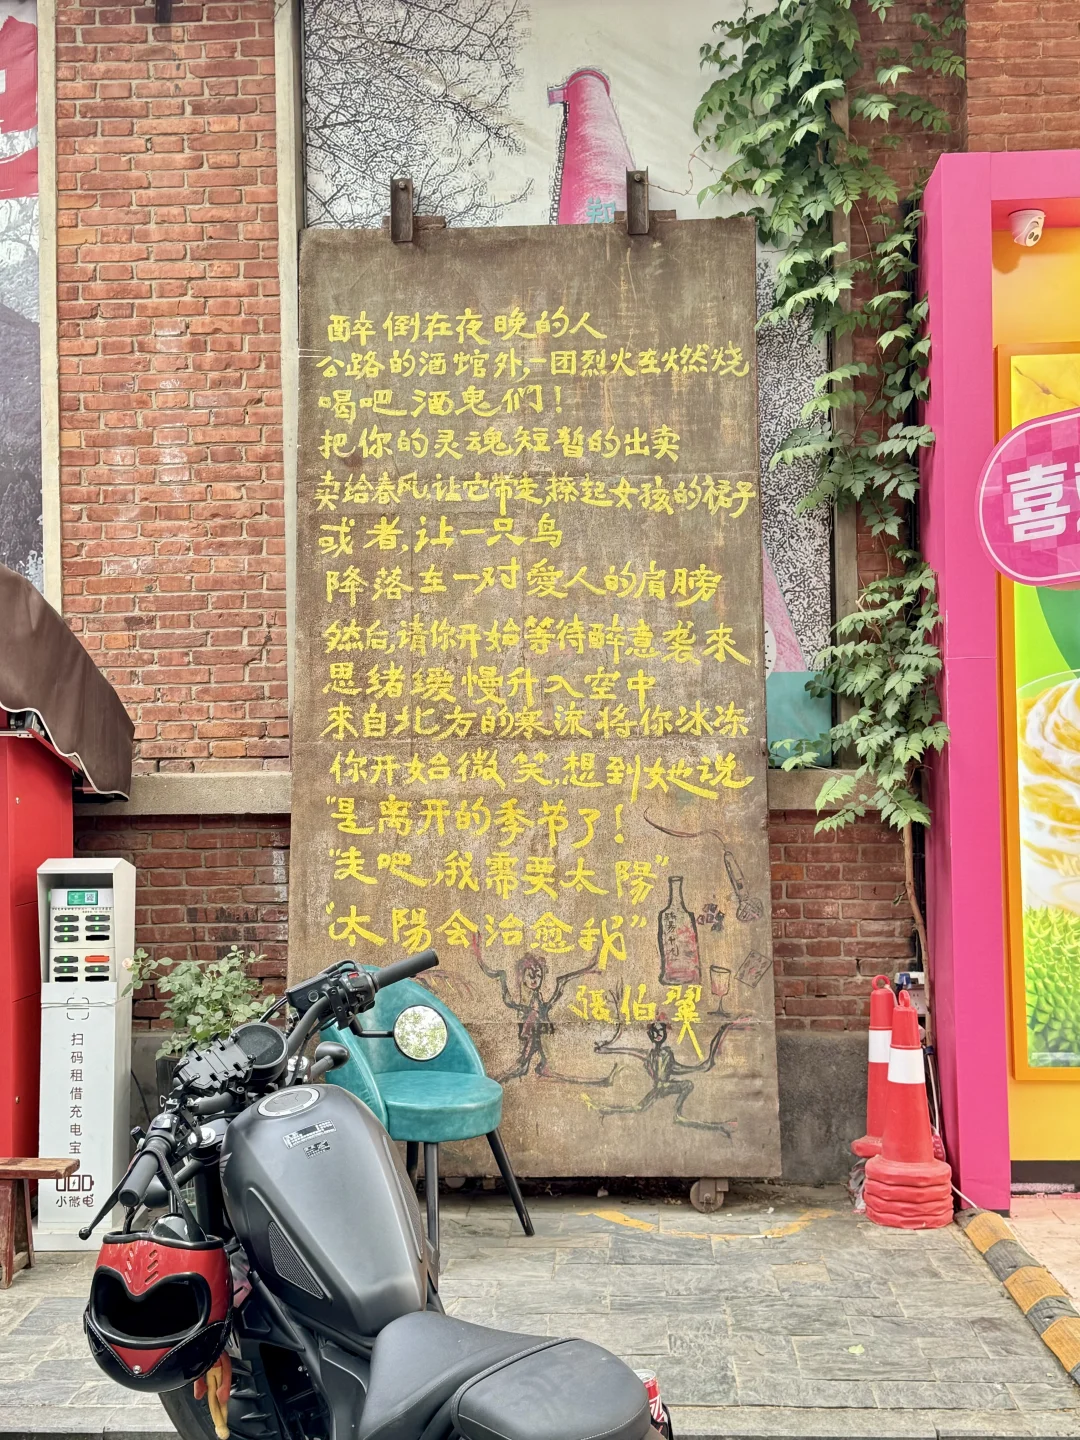 醉倒在夜晚的人
公路的酒馆外,一团烈火在燃烧
喝吧酒鬼们！
把你的灵魂短暂的出卖
卖给春风,让它带走,撩起女孩的裙子
或者,让一只鸟
降落在一对愛人的肩膀
然后,请你开始等待醉意袭来
思绪缓慢升入空中
來自北方的寒流将你冰冻
你开始微笑,想到她说
"是离开的季节了！
"走吧,我需要太陽"
"太陽会治愈我"
張伯翼
喜
扫码租借充电宝
小微电